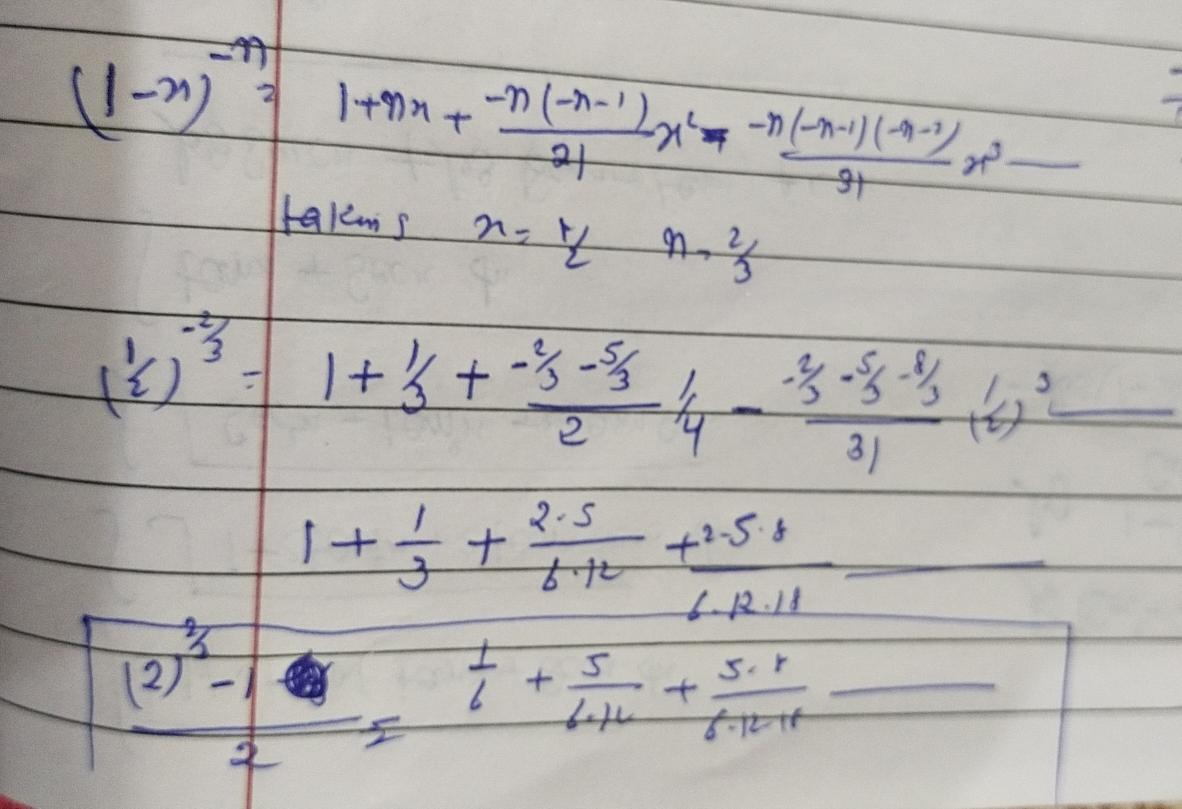 (1-x)^-n = 1+nx + -n(-n-1)/2! x² - -n(-n-1)(-n-2)/3! x³ —
taking x = 1/2 n = 2/3
(1/2)^-2/3 = 1 + 1/3 + -2/3 -5/3 / 2 1/4 - -2/3 -5/3 -8/3 / 3! (1/2)³ —
1 + 1/3 + 2·5/6·12 + 2·5·8/6·12·18 —
(2)^2/3 - 1 / 2 = 1/6 + 5/6·12 + 5·8/6·12·18 —